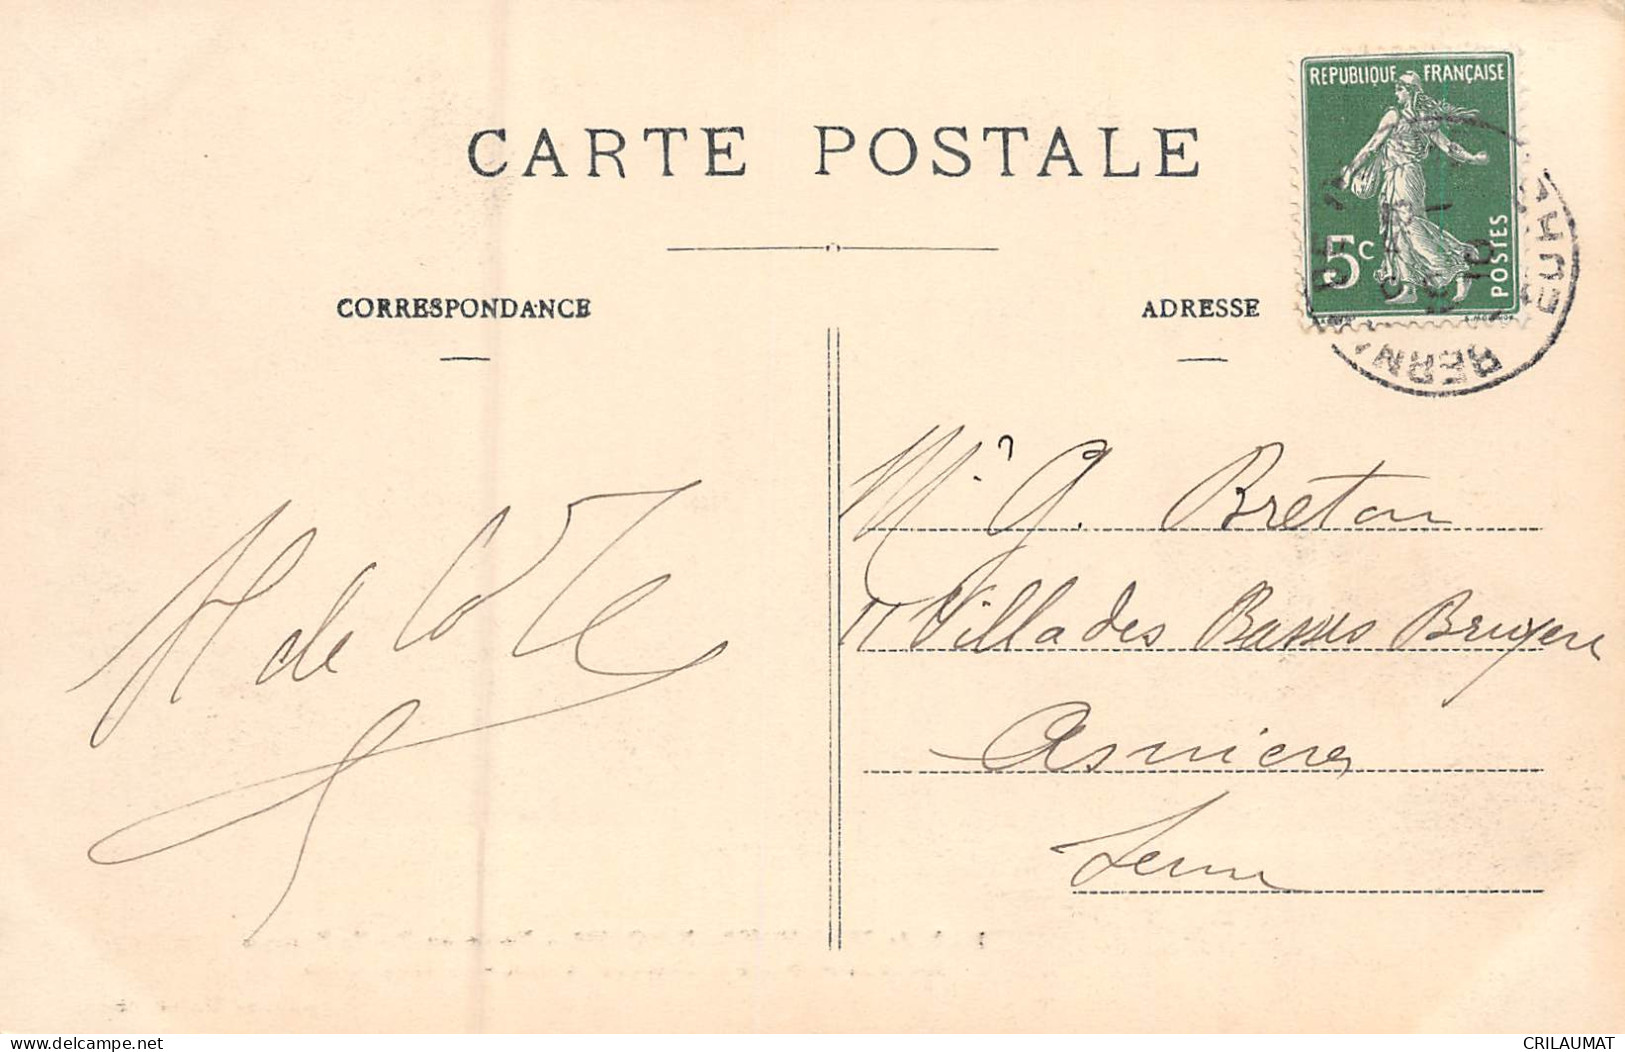 REPUBLIQUE FRANÇAISE
5c
POSTES
CARTE POSTALE
CORRESPONDANCE
ADRESSE
BERNAY EURE
Mr G. Breton
11 Villa des Basses Bruyere
Asnieres
Seine
H de
www.delcampe.net
CRILAUMAT